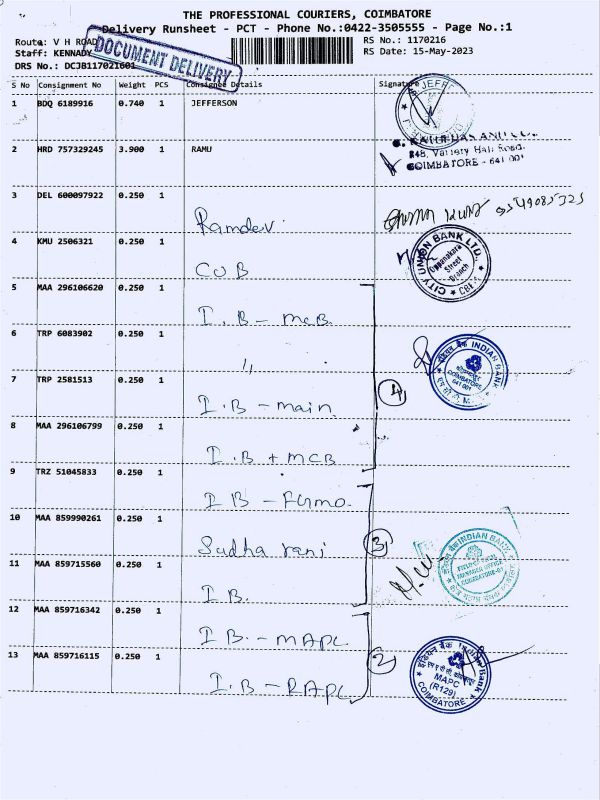 THE PROFESSIONAL COURIERS, COIMBATORE
Delivery Runsheet - PCT - Phone No.:0422-3505555 - Page No.:1
Route: V H ROAD
RS No.: 1170216
Staff: KENNADY
RS Date: 15-May-2023
DRS No.: DCJB117021601
DOCUMENT DELIVERY
S No Consignment No Weight PCS Consignee Details Signature
1 BDQ 6189916 0.740 1 JEFFERSON
JEFF
2 HRD 757329245 3.900 1 RAMU
848, Variety Hall Road.
COIMBATORE - 641 001
3 DEL 600097922 0.250 1 Ramdev
4 KMU 2506321 0.250 1 CUB
CITY UNION BANK LTD.
Oppanakara
Street
Branch
5 MAA 296106620 0.250 1 I.B - MCB
6 TRP 6083902 0.250 1 "
INDIAN BANK
COIMBATORE
641 001
7 TRP 2581513 0.250 1 I.B - main
4
8 MAA 296106799 0.250 1 I.B + MCB
9 TRZ 51045833 0.250 1 I B -
10 MAA 859990261 0.250 1 Sudha rani
3
INDIAN BANK
MANAGER OFFICE
11 MAA 859715560 0.250 1 I B.
12 MAA 859716342 0.250 1 I B. - MAPC
2
इंडियन बैंक Indian Bank
MAPC
(R129)
COIMBATORE
13 MAA 859716115 0.250 1 I.B - RAPC